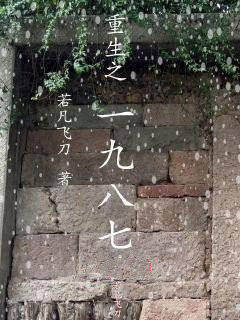 重生之
一九八七
若凡飞刀 著